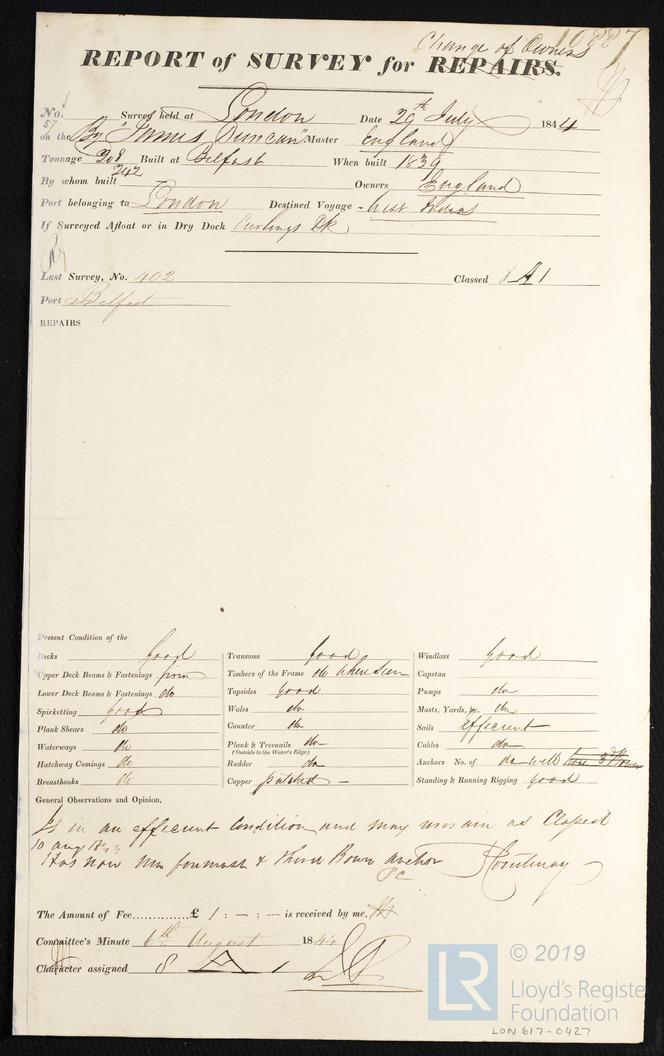 Change of Owners 10887
REPORT of SURVEY for REPAIRS.
No. 57 Survey held at London Date 29th July 1844
on the Bg "James Duncan" Master England
Tonnage 208 Built at Belfast When built 1839
242
By whom built Owners England
Port belonging to London Destined Voyage - West Indias
If Surveyed Afloat or in Dry Dock Curlings Dk
Last Survey, No. 402 Classed 8 A 1
Port Belfast
REPAIRS
Present Condition of the
Decks good Transoms good Windlass good
Upper Deck Beams & Fastenings firm Timbers of the Frame do when seen Capstan
Lower Deck Beams & Fastenings do Topsides good Pumps do
Spirketting good Wales do Masts, Yards, &c. do
Plank Shears do Counter do Sails efficient
Waterways do Plank & Treenails do Cables do
(Outside to the Water's Edge)
Hatchway Comings do Rudder do Anchors No. of do with
Breasthooks do Copper patched - Standing & Running Rigging good
General Observations and Opinion,
Is in an efficient condition and may remain as Classed
10 Aug
Has now foremast & third Bower anchor Courtenay
The Amount of Fee.............£ 1 : - : - is received by me,
Committee's Minute 6th August 1844
Character assigned 8 A 1
© 2019
LR Lloyd's Registe
Foundation
LON 617-0427